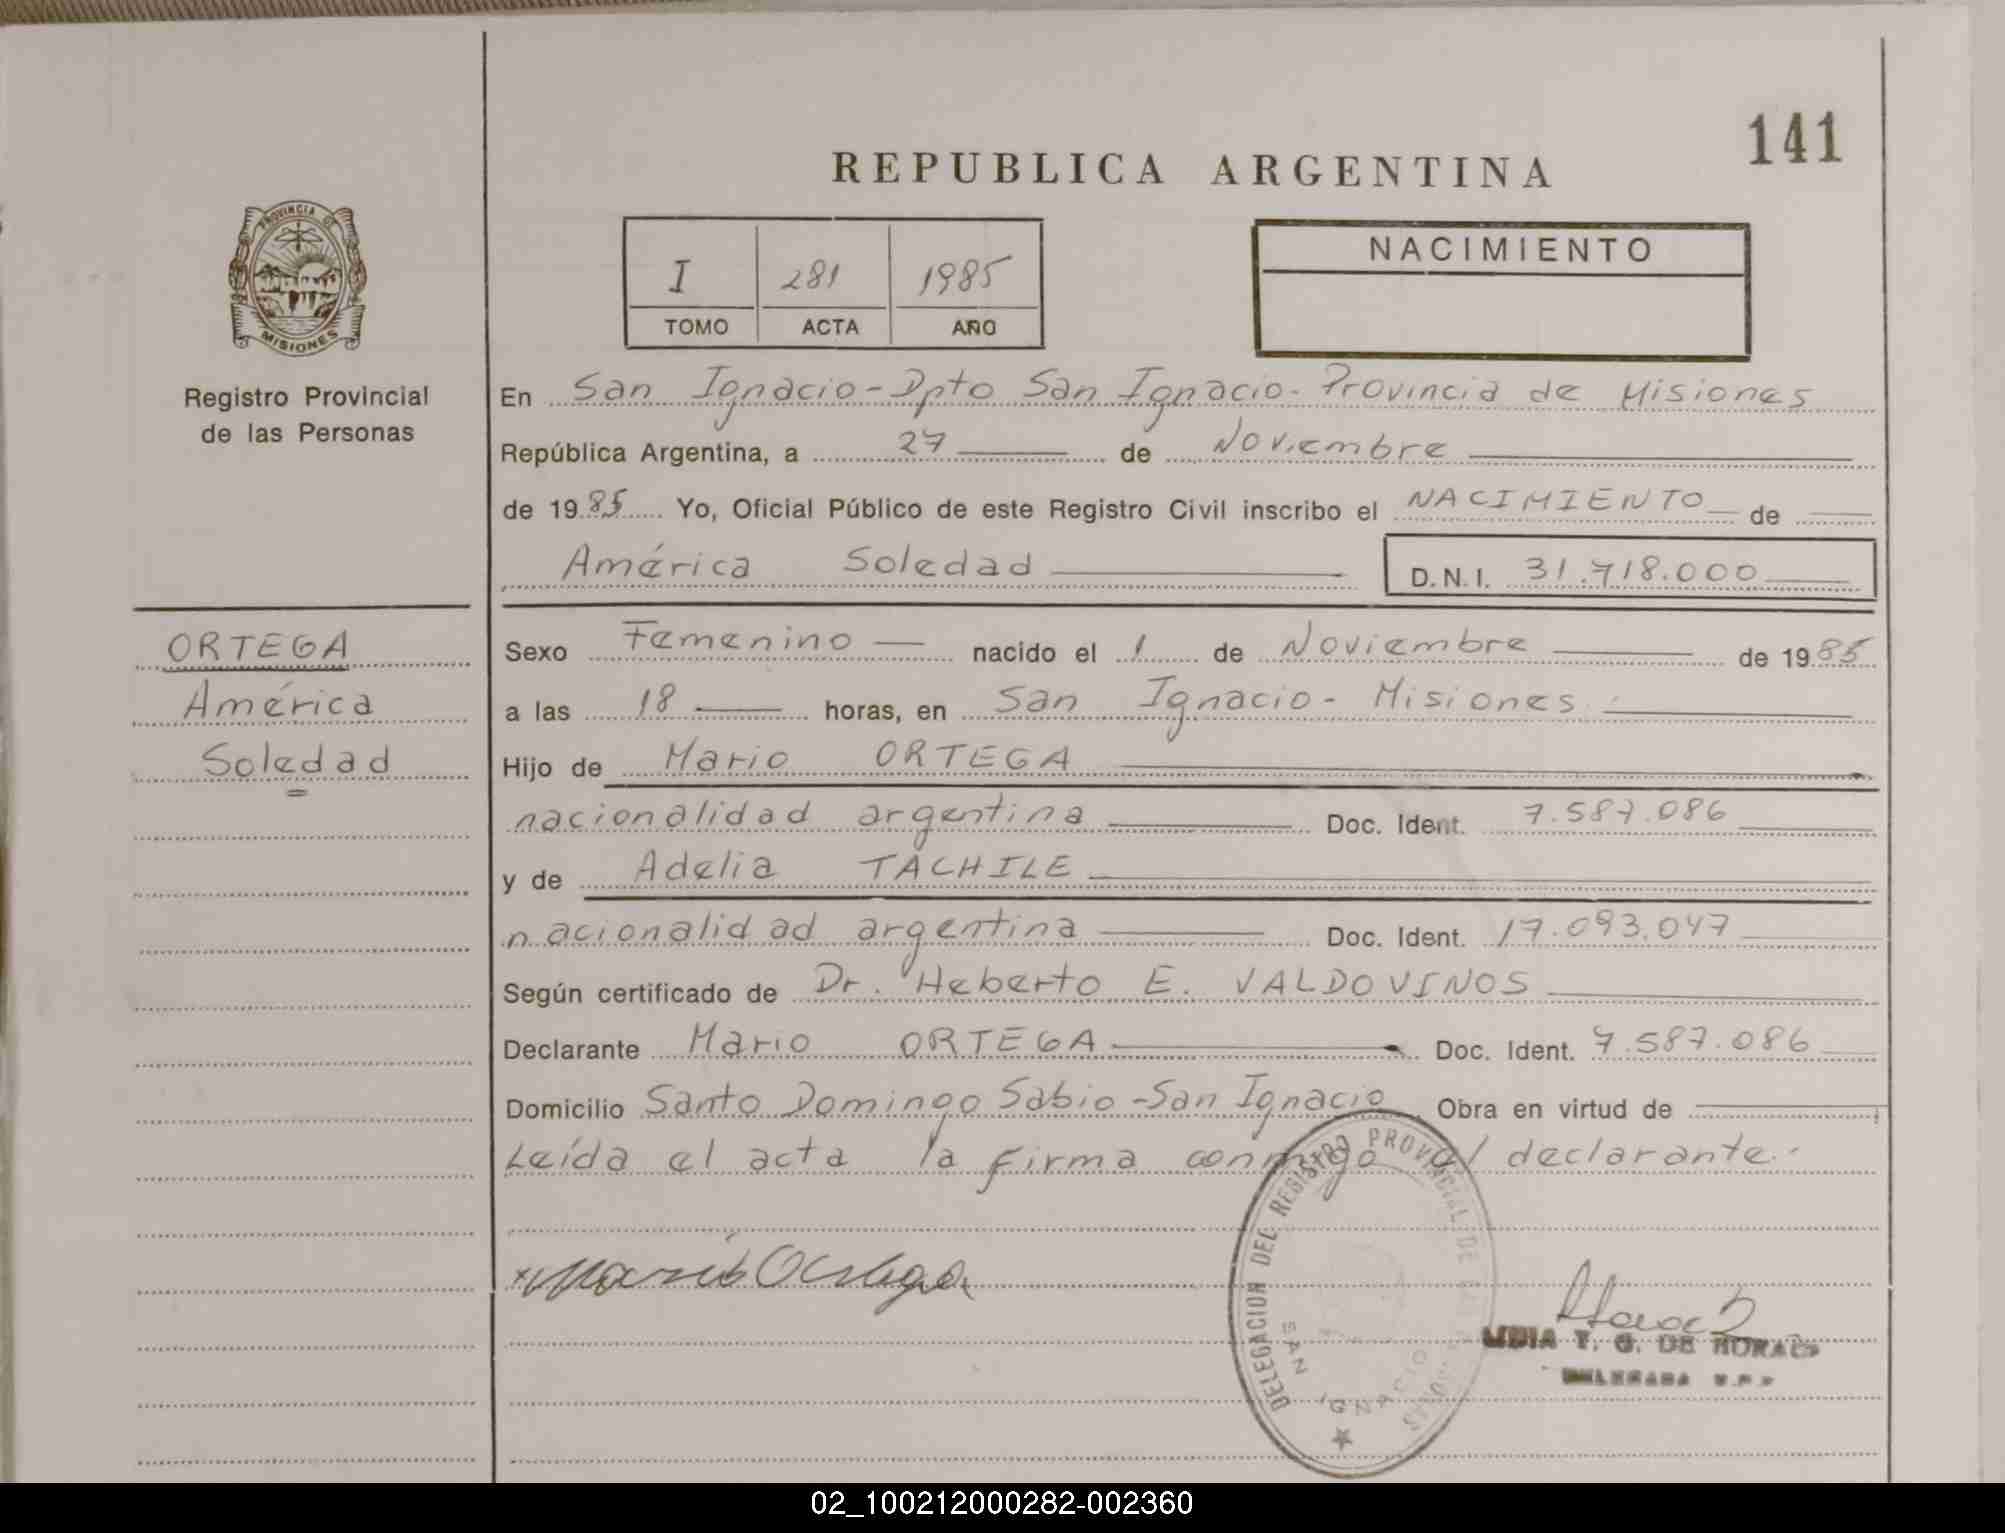 141
REPUBLICA ARGENTINA
PROVINCIA DE
MISIONES
Registro Provincial
de las Personas
I 281 1985
TOMO ACTA AÑO
NACIMIENTO
En San Ignacio - Dpto San Ignacio - Provincia de Misiones
República Argentina, a 27 de Noviembre
de 1985 Yo, Oficial Público de este Registro Civil inscribo el NACIMIENTO de
América Soledad D.N.I. 31.718.000
ORTEGA
América
Soledad
Sexo Femenino nacido el 1 de Noviembre de 1985
a las 18 horas, en San Ignacio - Misiones
Hijo de Mario ORTEGA
nacionalidad argentina Doc. Ident. 7.587.086
y de Adelia TACHILE
nacionalidad argentina Doc. Ident. 17.093.047
Según certificado de Dr. Heberto E. VALDOVINOS
Declarante Mario ORTEGA Doc. Ident. 7.587.086
Domicilio Santo Domingo Sabio - San Ignacio Obra en virtud de
Leída el acta la firma conmigo el declarante.
Mario Ortega
DELEGACION DEL REGISTRO PROVINCIAL DE
SAN IGNACIO
T. G. DE
02_100212000282-002360